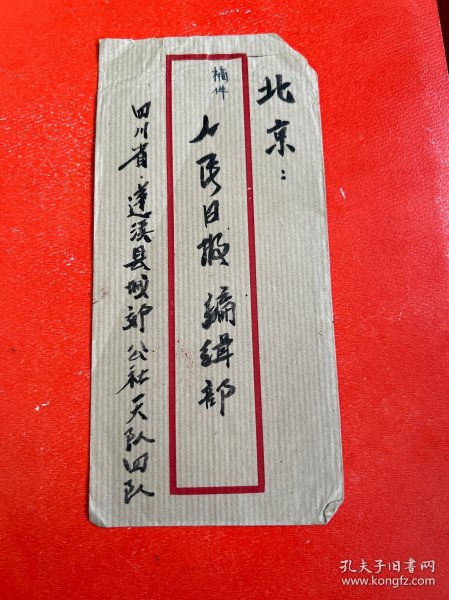 北京：
稿件
人民日报编辑部
四川省·蓬溪县城郊公社天队四队
孔夫子旧书网
www.kongfz.com